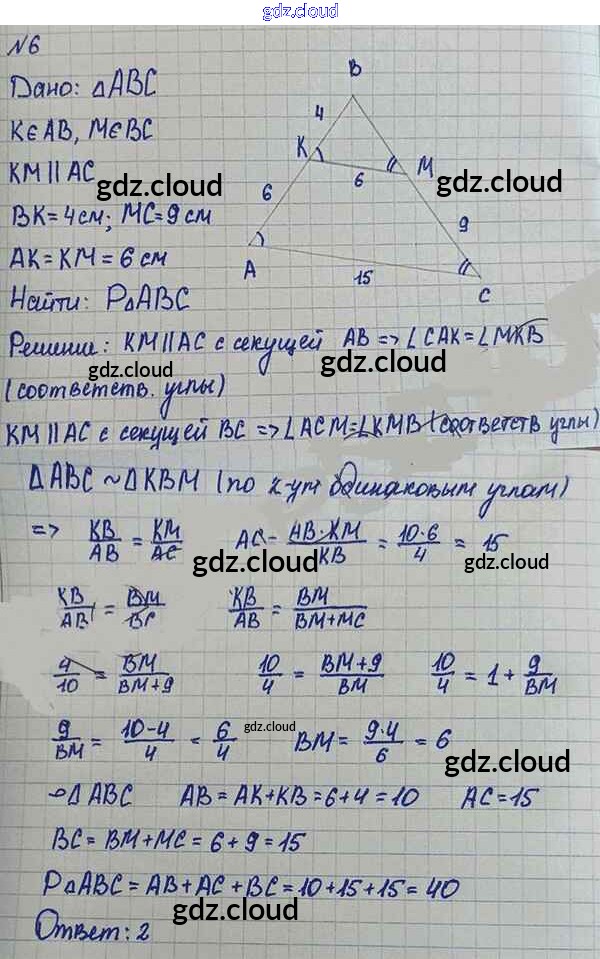 gdz.cloud
N6
Дано: △ABC
K∈AB, M∈BC
KM || AC
gdz.cloud
BK = 4см; MC = 9 см
AK = KM = 6 см
Найти: P△ABC
B
4
K
M
6
gdz.cloud
6
9
A
15
C
Решение: KM || AC с секущей AB => ∠CAK = ∠MKB
gdz.cloud
gdz.cloud
(соответств. углы)
KM || AC с секущей BC => ∠ACM = ∠KMB (соответств углы)
gdz.cloud
△ABC ~ △KBM (по одинаковым углам)
gdz.cloud
=> KB/AB = KM/AC AC = AB·KM/KB = 10·6/4 = 15
gdz.cloud
KB/AB = BM/BC KB/AB = BM/BM+MC
4/10 = BM/BM+9 10/4 = BM+9/BM 10/4 = 1 + 9/BM
9/BM = 10-4/4 = 6/4 gdz.cloud BM = 9·4/6 = 6
gdz.cloud
△ABC AB = AK + KB = 6 + 4 = 10 AC = 15
BC = BM + MC = 6 + 9 = 15
gdz.cloud
P△ABC = AB + AC + BC = 10 + 15 + 15 = 40
gdz.cloud
Ответ: 2